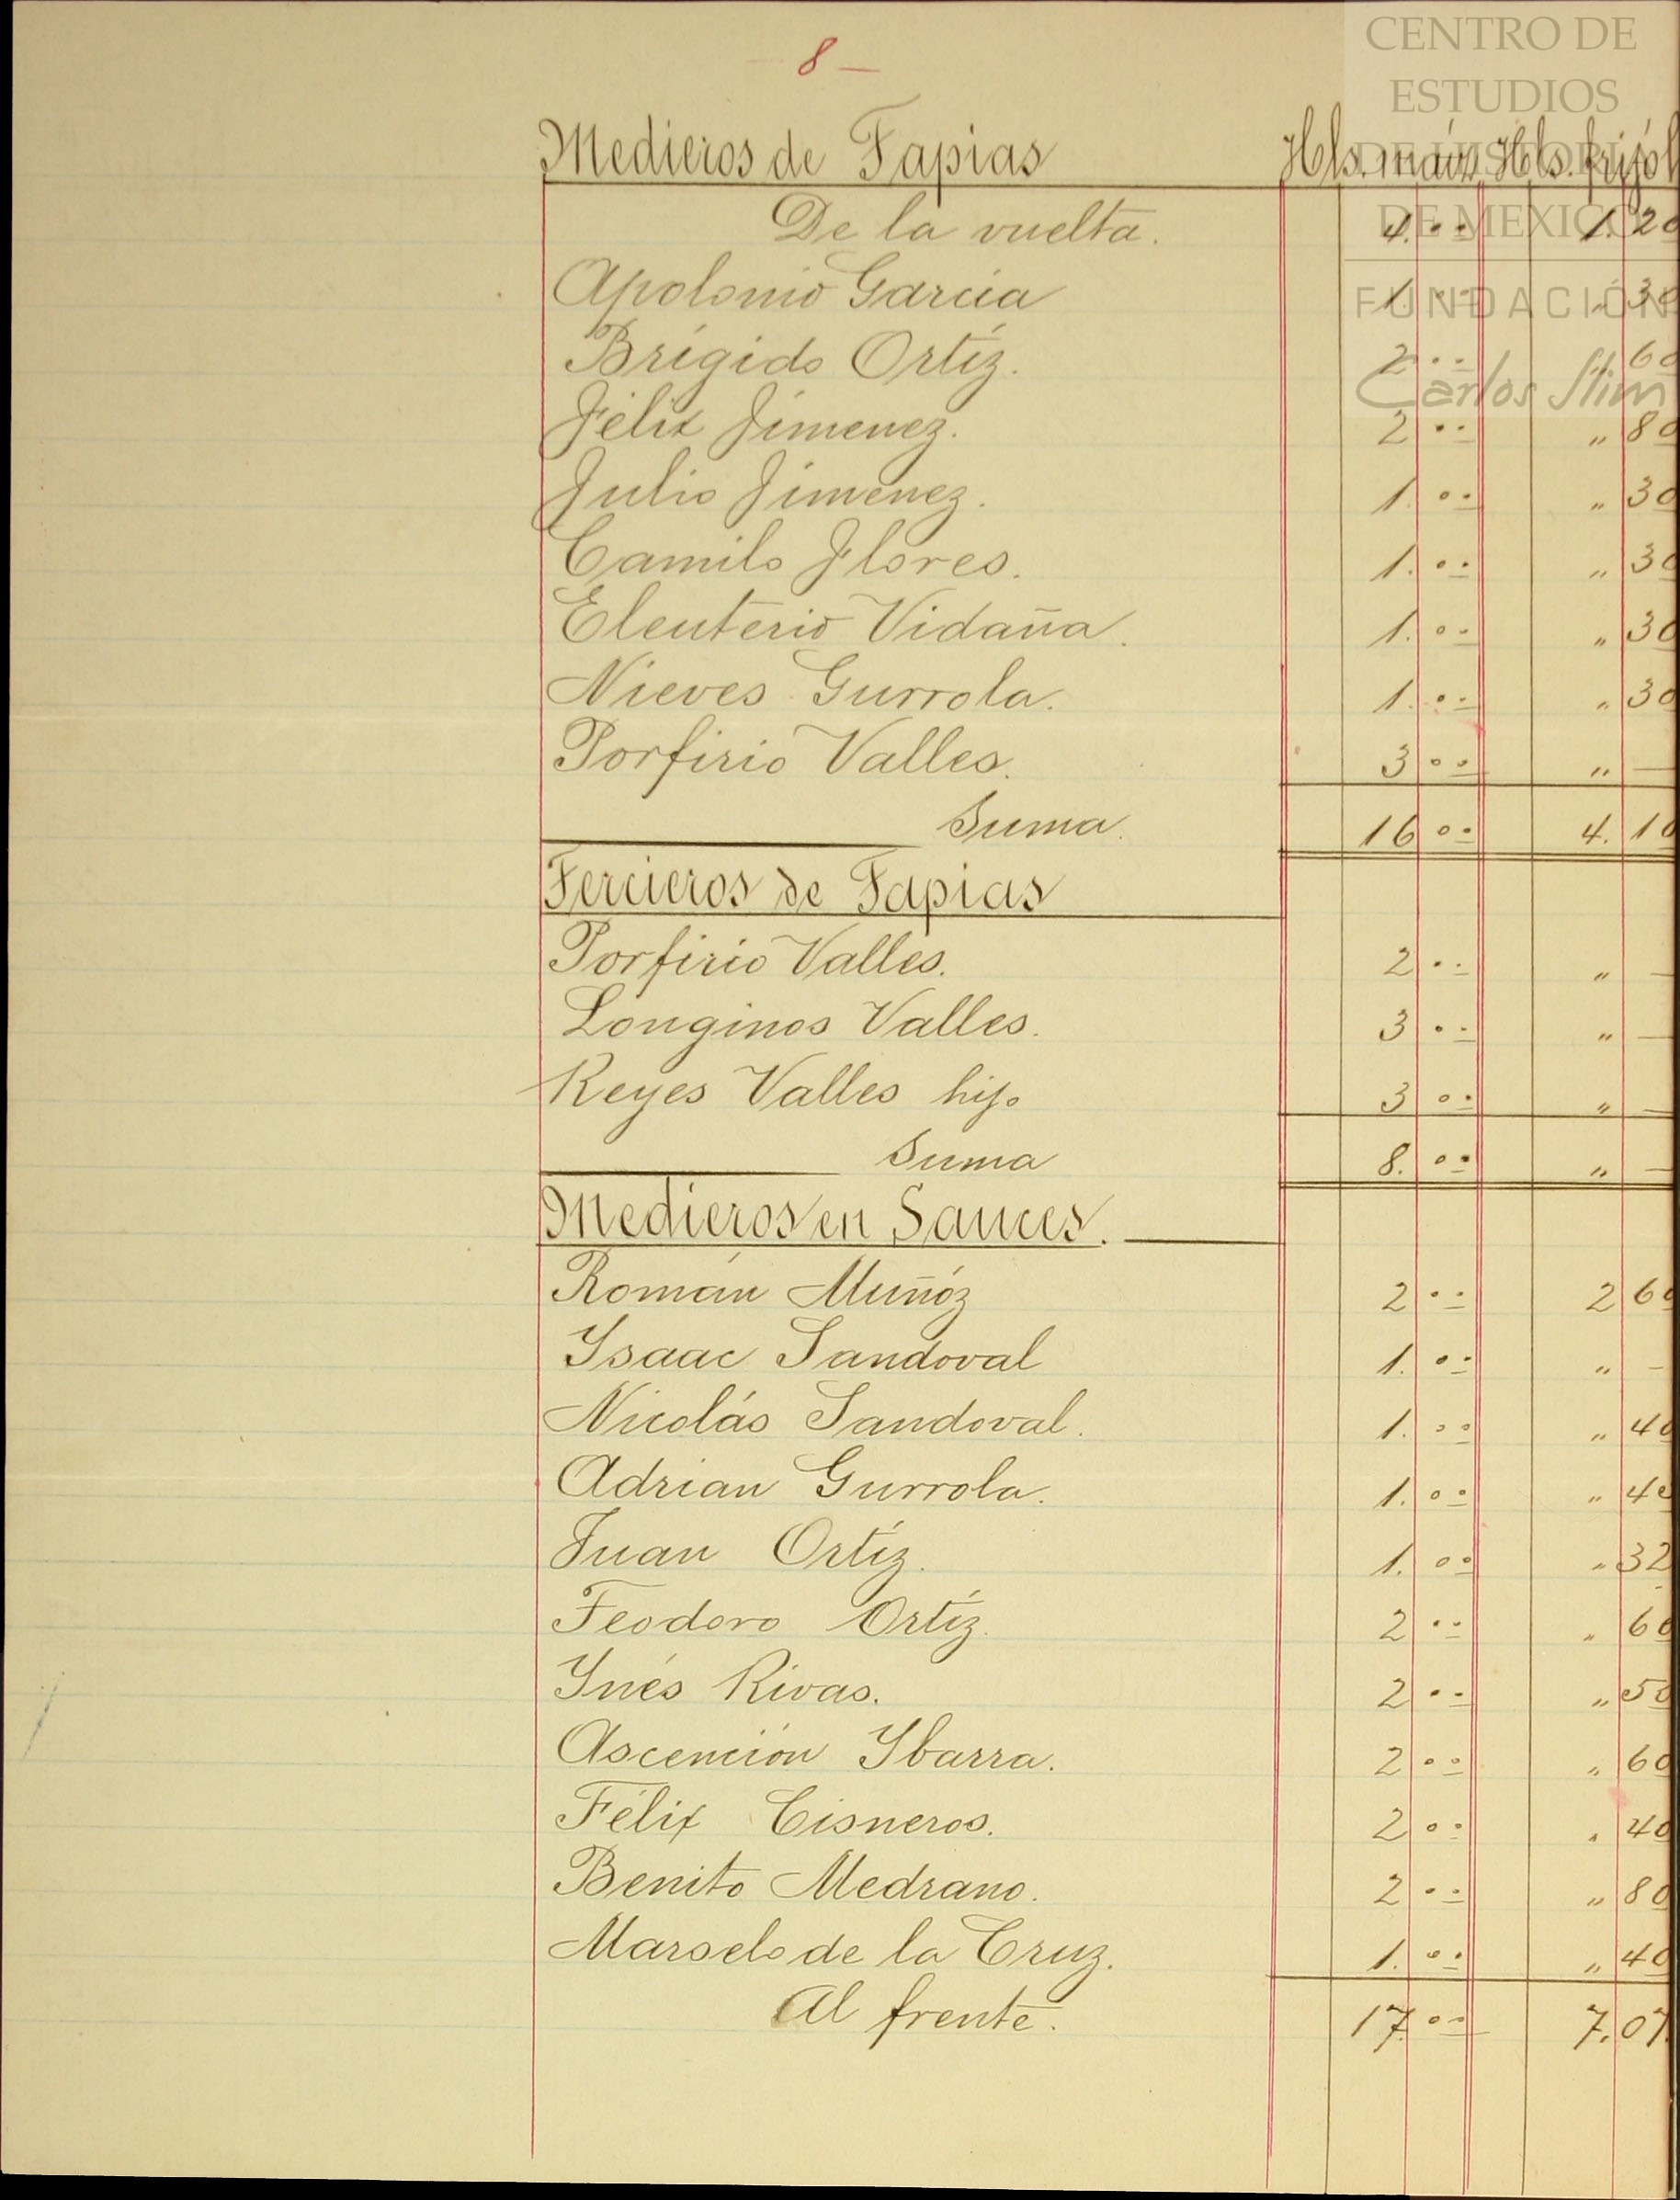 8 —
CENTRO DE
ESTUDIOS
DE HISTORIA
DE MEXICO
FUNDACIÓN
Carlos Slim
Medieros de Tapias Hls. maíz Hls. frijol
De la vuelta. 4. 00 1. 20
Apolonio Garcia 1. 00 „ 30
Brígido Ortíz. 2 00 „ 60
Félix Jimenez. 2 00 „ 80
Julio Jimenez. 1. 00 „ 30
Camilo Flores. 1. 00 „ 30
Eleuterio Vidaña. 1. 00 „ 30
Nieves Gurrola. 1. 00 „ 30
Porfirio Valles. 3 00 „ —
Suma. 16 00 4. 10
Tercieros de Tapias
Porfirio Valles. 2 00 „ —
Longinos Valles. 3 00 „ —
Reyes Valles hijo 3 00 „ —
Suma 8. 00 „ —
Medieros en Sauces.
Román Muñóz 2 00 2 60
Ysaac Sandoval 1. 00 „ —
Nicolás Sandoval. 1. 00 „ 40
Adrian Gurrola. 1. 00 „ 40
Juan Ortíz. 1. 00 „ 32
Teodoro Ortíz. 2 00 „ 60
Ynés Rivas. 2 00 „ 50
Ascención Ybarra. 2 00 „ 60
Félix Cisneros. 2 00 „ 40
Benito Medrano. 2 00 „ 80
Marselo de la Cruz. 1. 00 „ 40
Al frente. 17. 00 7. 07